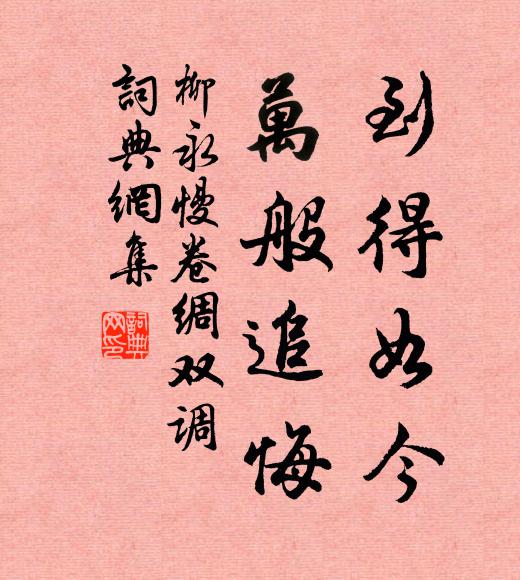 到得如今
萬般追悔
柳永慢卷綢双调
詞典網集
詞典网印